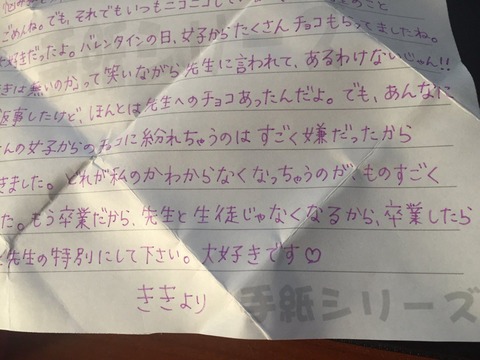 ごめんね。でも、それでもいつもニコニコして
好きだったよ。バレンタインの日、女子からたくさんチョコもらってましたね。
きは無いのかって笑いながら先生に言われて、あるわけないじゃん!!
返事したけど、ほんとは先生へのチョコあったんだよ。でも、あんなに
んの女子からのチョコに紛れちゃうのはすごく嫌だったから
きました。どれが私のかわからなくなっちゃうのが、ものすごく
た。もう卒業だから、先生と生徒じゃなくなるから、卒業したら
先生の特別にして下さい。大好きです♡
ききより
手紙シリーズ